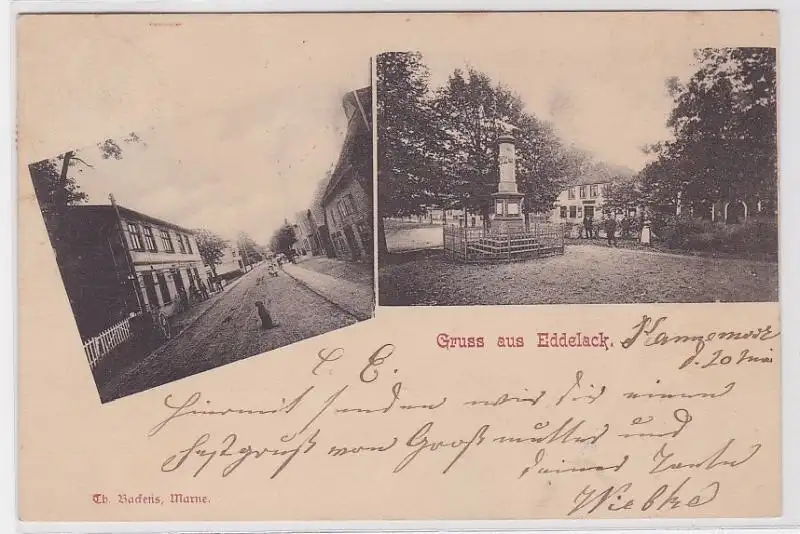 Gruss aus Eddelack.
d. 20 Mai
L. E.
Hiermit senden wir Dir einen
Festgruß von Großmutter und
deiner Tante
Wiebke
Th. Backens, Marne.